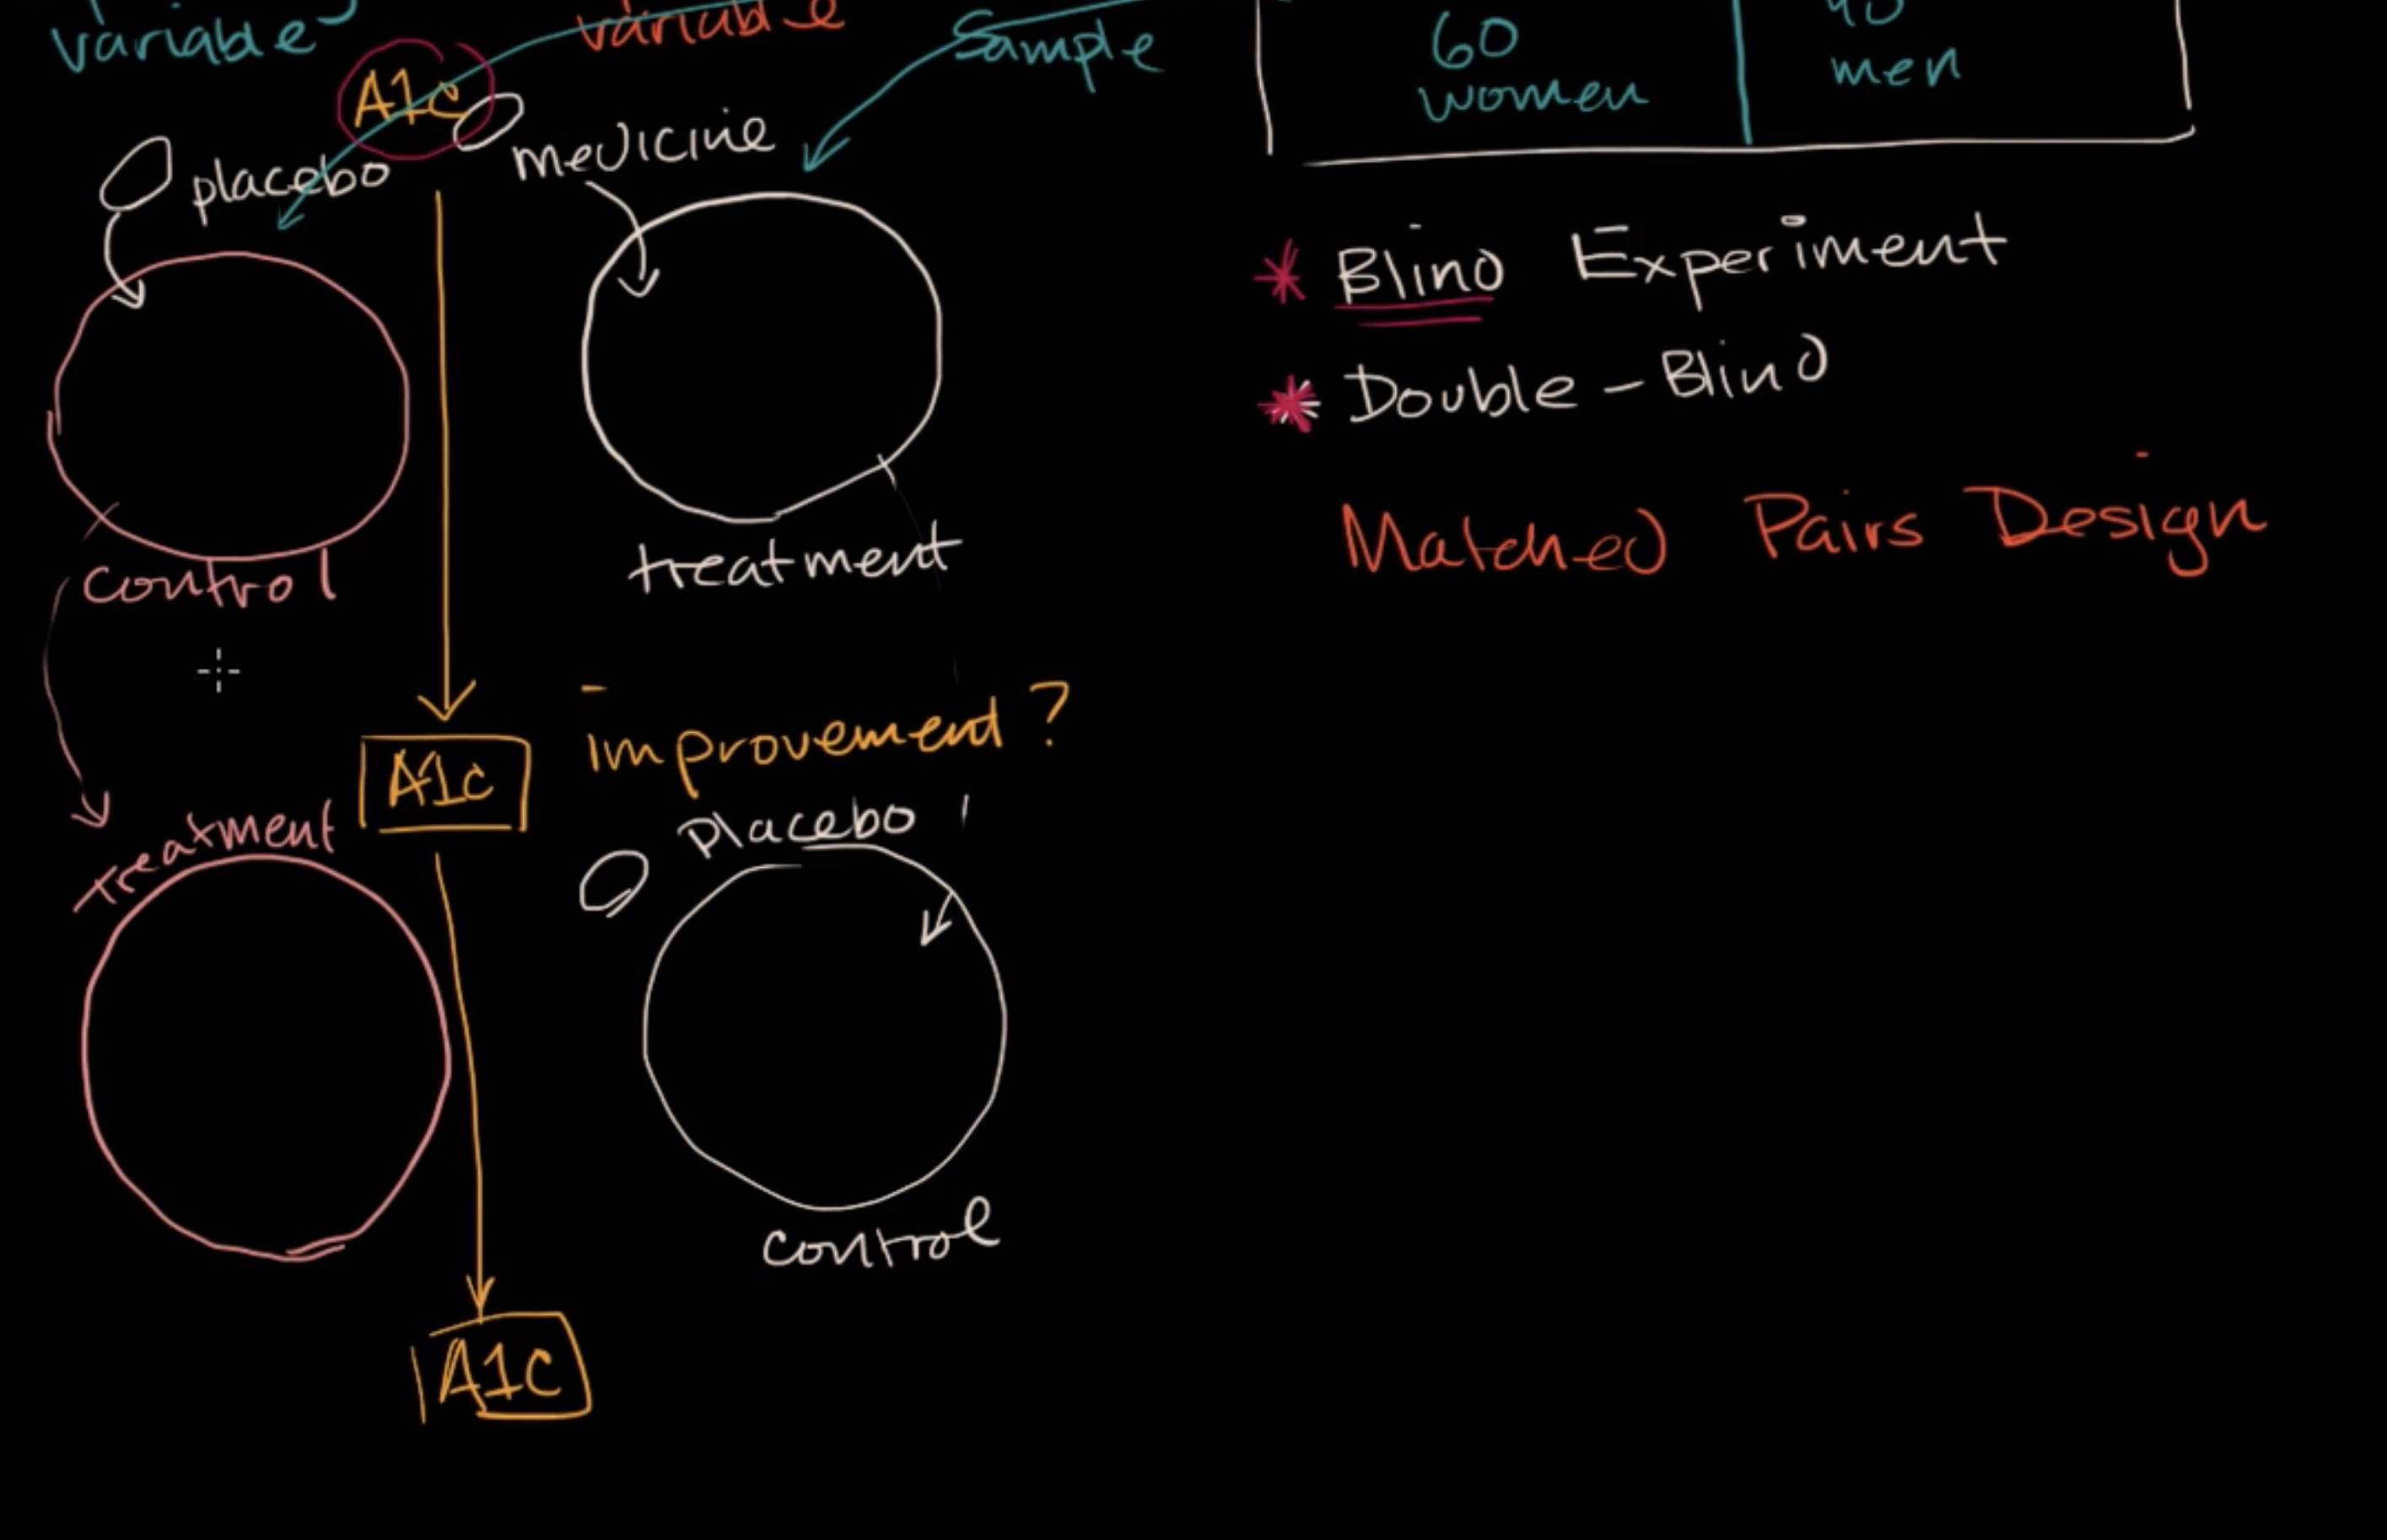 variable
variable
Sample
60
women
40
men
A1c
placebo
medicine
Blind Experiment
Double-Blind
Matched Pairs Design
control
treatment
improvement?
A1c
treatment
Placebo
control
A1C